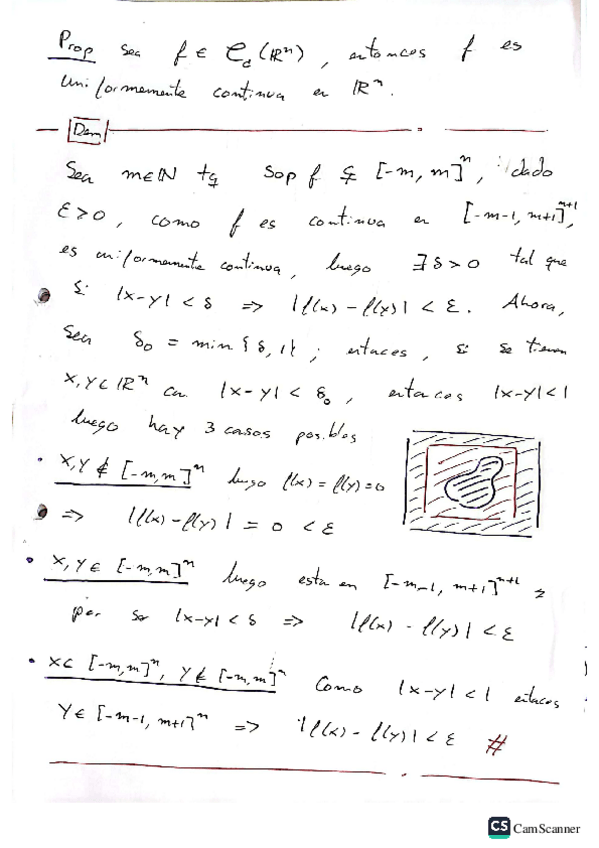 Prop Sea f ∈ C_c(ℝⁿ), entonces f es
uniformemente continua en ℝⁿ.
Dem
Sea m∈ℕ tq Sop f ⊊ [-m, m]ⁿ, dado
ε>0, como f es continua en [-m-1, m+1]ⁿ⁺¹,
es uniformemente continua, luego ∃ δ>0 tal que
si |x-y| < δ ⇒ |f(x) - f(y)| < ε. Ahora,
Sea δ₀ = min{δ, 1}; entonces, si se tienen
x, y ∈ ℝⁿ con |x-y| < δ₀, entonces |x-y|<1
luego hay 3 casos posibles
• x, y ∉ [-m, m]ⁿ luego f(x) = f(y) = 0
⇒ |f(x) - f(y)| = 0 < ε
• x, y ∈ [-m, m]ⁿ luego esta en [-m-1, m+1]ⁿ⁺¹ y
por ser |x-y| < δ ⇒ |f(x) - f(y)| < ε
• x∈ [-m, m]ⁿ, y ∉ [-m, m]ⁿ Como |x-y| < 1 entonces
y ∈ [-m-1, m+1]ⁿ ⇒ |f(x) - f(y)| < ε #
CS CamScanner